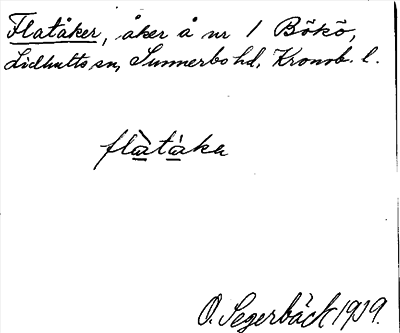 Flatåker, åker å nr 1 Bökö,
Lidhults sn, Sunnerbo hd, Kronob. l.
flàtáka
O. Segerbäck 1919.